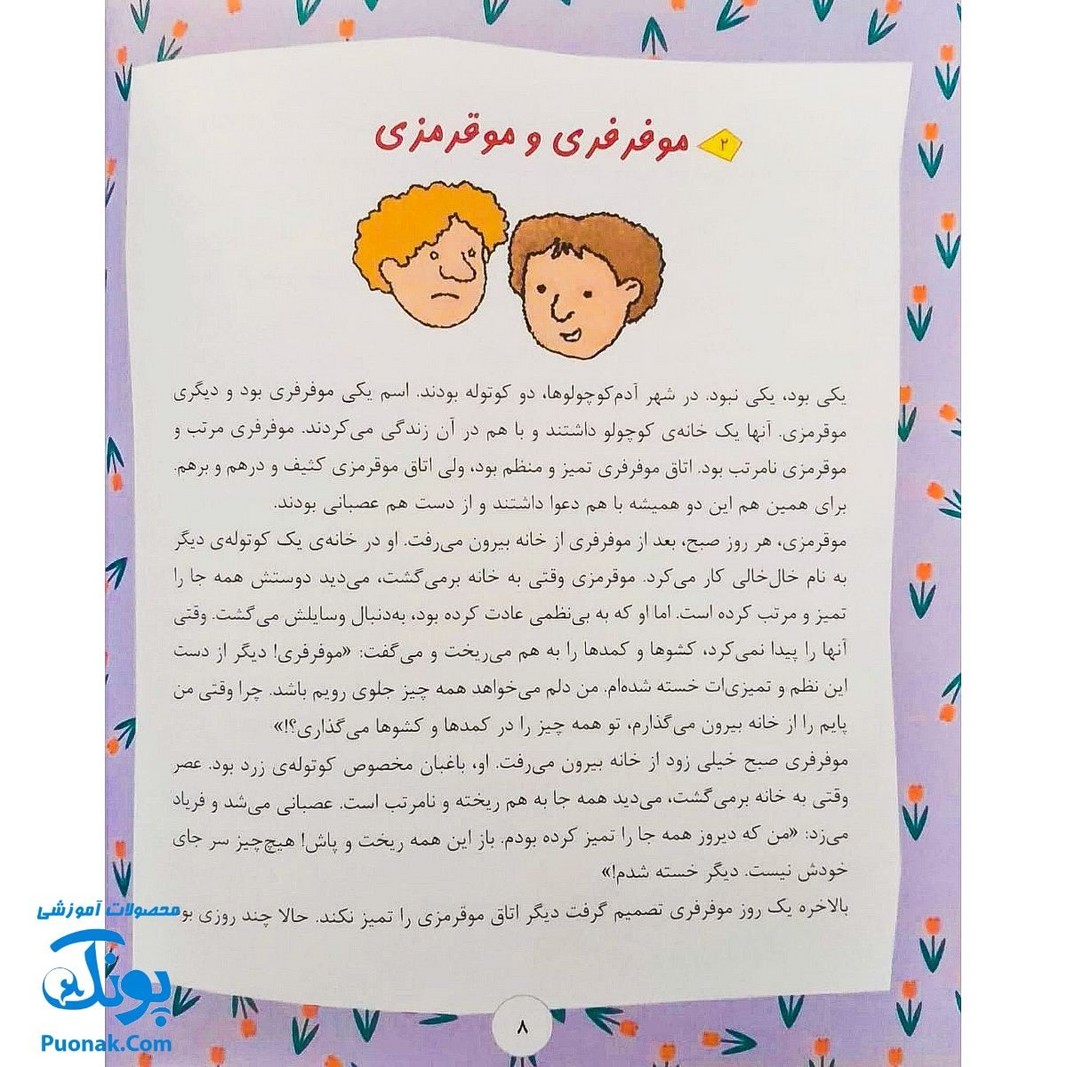 ۲
موفرفری و موقرمزی
یکی بود، یکی نبود. در شهر آدم‌کوچولوها، دو کوتوله بودند. اسم یکی موفرفری بود و دیگری
موقرمزی. آنها یک خانه‌ی کوچولو داشتند و با هم در آن زندگی می‌کردند. موفرفری مرتب و
موقرمزی نامرتب بود. اتاق موفرفری تمیز و منظم بود، ولی اتاق موقرمزی کثیف و درهم و برهم.
برای همین هم این دو همیشه با هم دعوا داشتند و از دست هم عصبانی بودند.
موقرمزی، هر روز صبح، بعد از موفرفری از خانه بیرون می‌رفت. او در خانه‌ی یک کوتوله‌ی دیگر
به نام خال‌خالی کار می‌کرد. موقرمزی وقتی به خانه برمی‌گشت، می‌دید دوستش همه جا را
تمیز و مرتب کرده است. اما او که به بی‌نظمی عادت کرده بود، به‌دنبال وسایلش می‌گشت. وقتی
آنها را پیدا نمی‌کرد، کشوها و کمدها را به هم می‌ریخت و می‌گفت: «موفرفری! دیگر از دست
این نظم و تمیزی‌ات خسته شده‌ام. من دلم می‌خواهد همه چیز جلوی رویم باشد. چرا وقتی من
پایم را از خانه بیرون می‌گذارم، تو همه چیز را در کمدها و کشوها می‌گذاری؟!»
موفرفری صبح خیلی زود از خانه بیرون می‌رفت. او، باغبان مخصوص کوتوله‌ی زرد بود. عصر
وقتی به خانه برمی‌گشت، می‌دید همه جا به هم ریخته و نامرتب است. عصبانی می‌شد و فریاد
می‌زد: «من که دیروز همه جا را تمیز کرده بودم. باز این همه ریخت و پاش! هیچ‌چیز سر جای
خودش نیست. دیگر خسته شدم!»
بالاخره یک روز موفرفری تصمیم گرفت دیگر اتاق موقرمزی را تمیز نکند. حالا چند روزی
۸
محصولات آموزشی
پونک
Puonak.Com